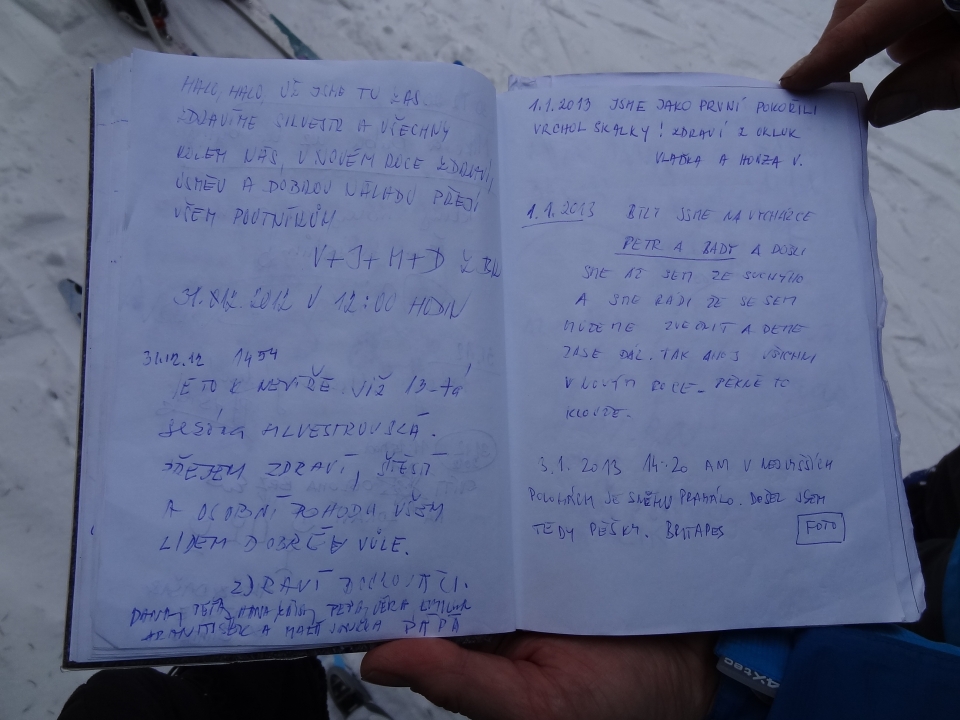 HALO, HALO, UŽ JSME TU ZAS.
ZDRAVÍME SILVESTR A VŠECHNY
KOLEM NÁS, V NOVÉM ROCE ZDRAVÍ,
ÚSMĚV A DOBROU NÁLADU PŘEJÍ
VŠEM POUTNÍKŮM
V+J+M+D Z
31. XII. 2012 V 12:00 HODIN
31.12.12 1454
JE TO K NEVÍŘE. JIŽ 13-TÁ
SILVESTROVSKÁ.
PŘEJEM ZDRAVÍ, ŠTĚSTÍ
A OSOBNÍ POHODU VŠEM
LIDEM DOBRÉ VŮLE.
DANA, VĚRA
A MALÁ PÁ PÁ
1.1.2013 JSME JAKO PRVNÍ POKOŘILI
VRCHOL SKALKY! ZDRAVÍ Z OKLUK
VLAĎKA A HONZA V.
1.1.2013 BYLY JSME NA VYCHÁZCE
PETR A BADY A DOŠLI
SME AŽ SEM ZE SUCHÝHO
A SME RÁDI ŽE SE SEM
MŮŽEME ZVĚČNIT A DEME
ZASE DÁL. TAK AHOJ VŠICHNI
V NOVÝM ROCE - PĚKNĚ TO
KLOUŽE.
3.1.2013 14.20 AM V NEJVYŠŠÍCH
POLOHÁCH SE SNĚHU PRAMÁLO. DOŠEL JSEM
TEDY PĚŠKY. BRTAPES
FOTO
4Xtec